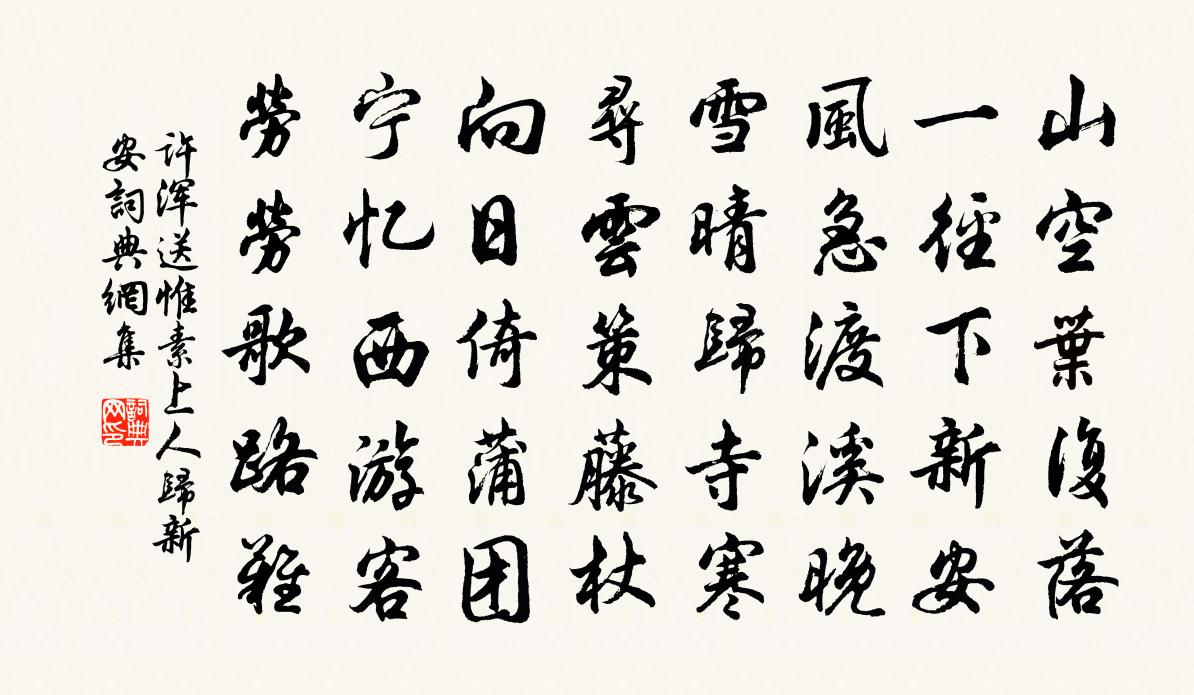 山空葉復落
一徑下新安
風急渡溪晚
雪晴歸寺寒
尋雲策藤杖
向日倚蒲团
宁忆西游客
勞勞歌路難
许浑送惟素上人歸新
安詞典網集
詞典网印